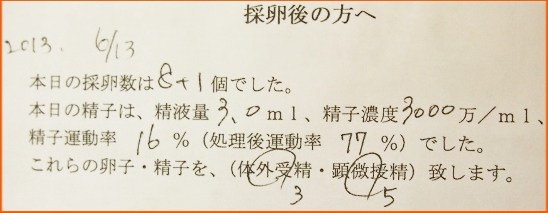 採卵後の方へ
2013. 6/13
本日の採卵数は8+1個でした。
本日の精子は、精液量3.0ml、精子濃度3000万/ml、
精子運動率 16 %(処理後運動率 77 %)でした。
これらの卵子・精子を、(体外受精・顕微授精)致します。
3 5